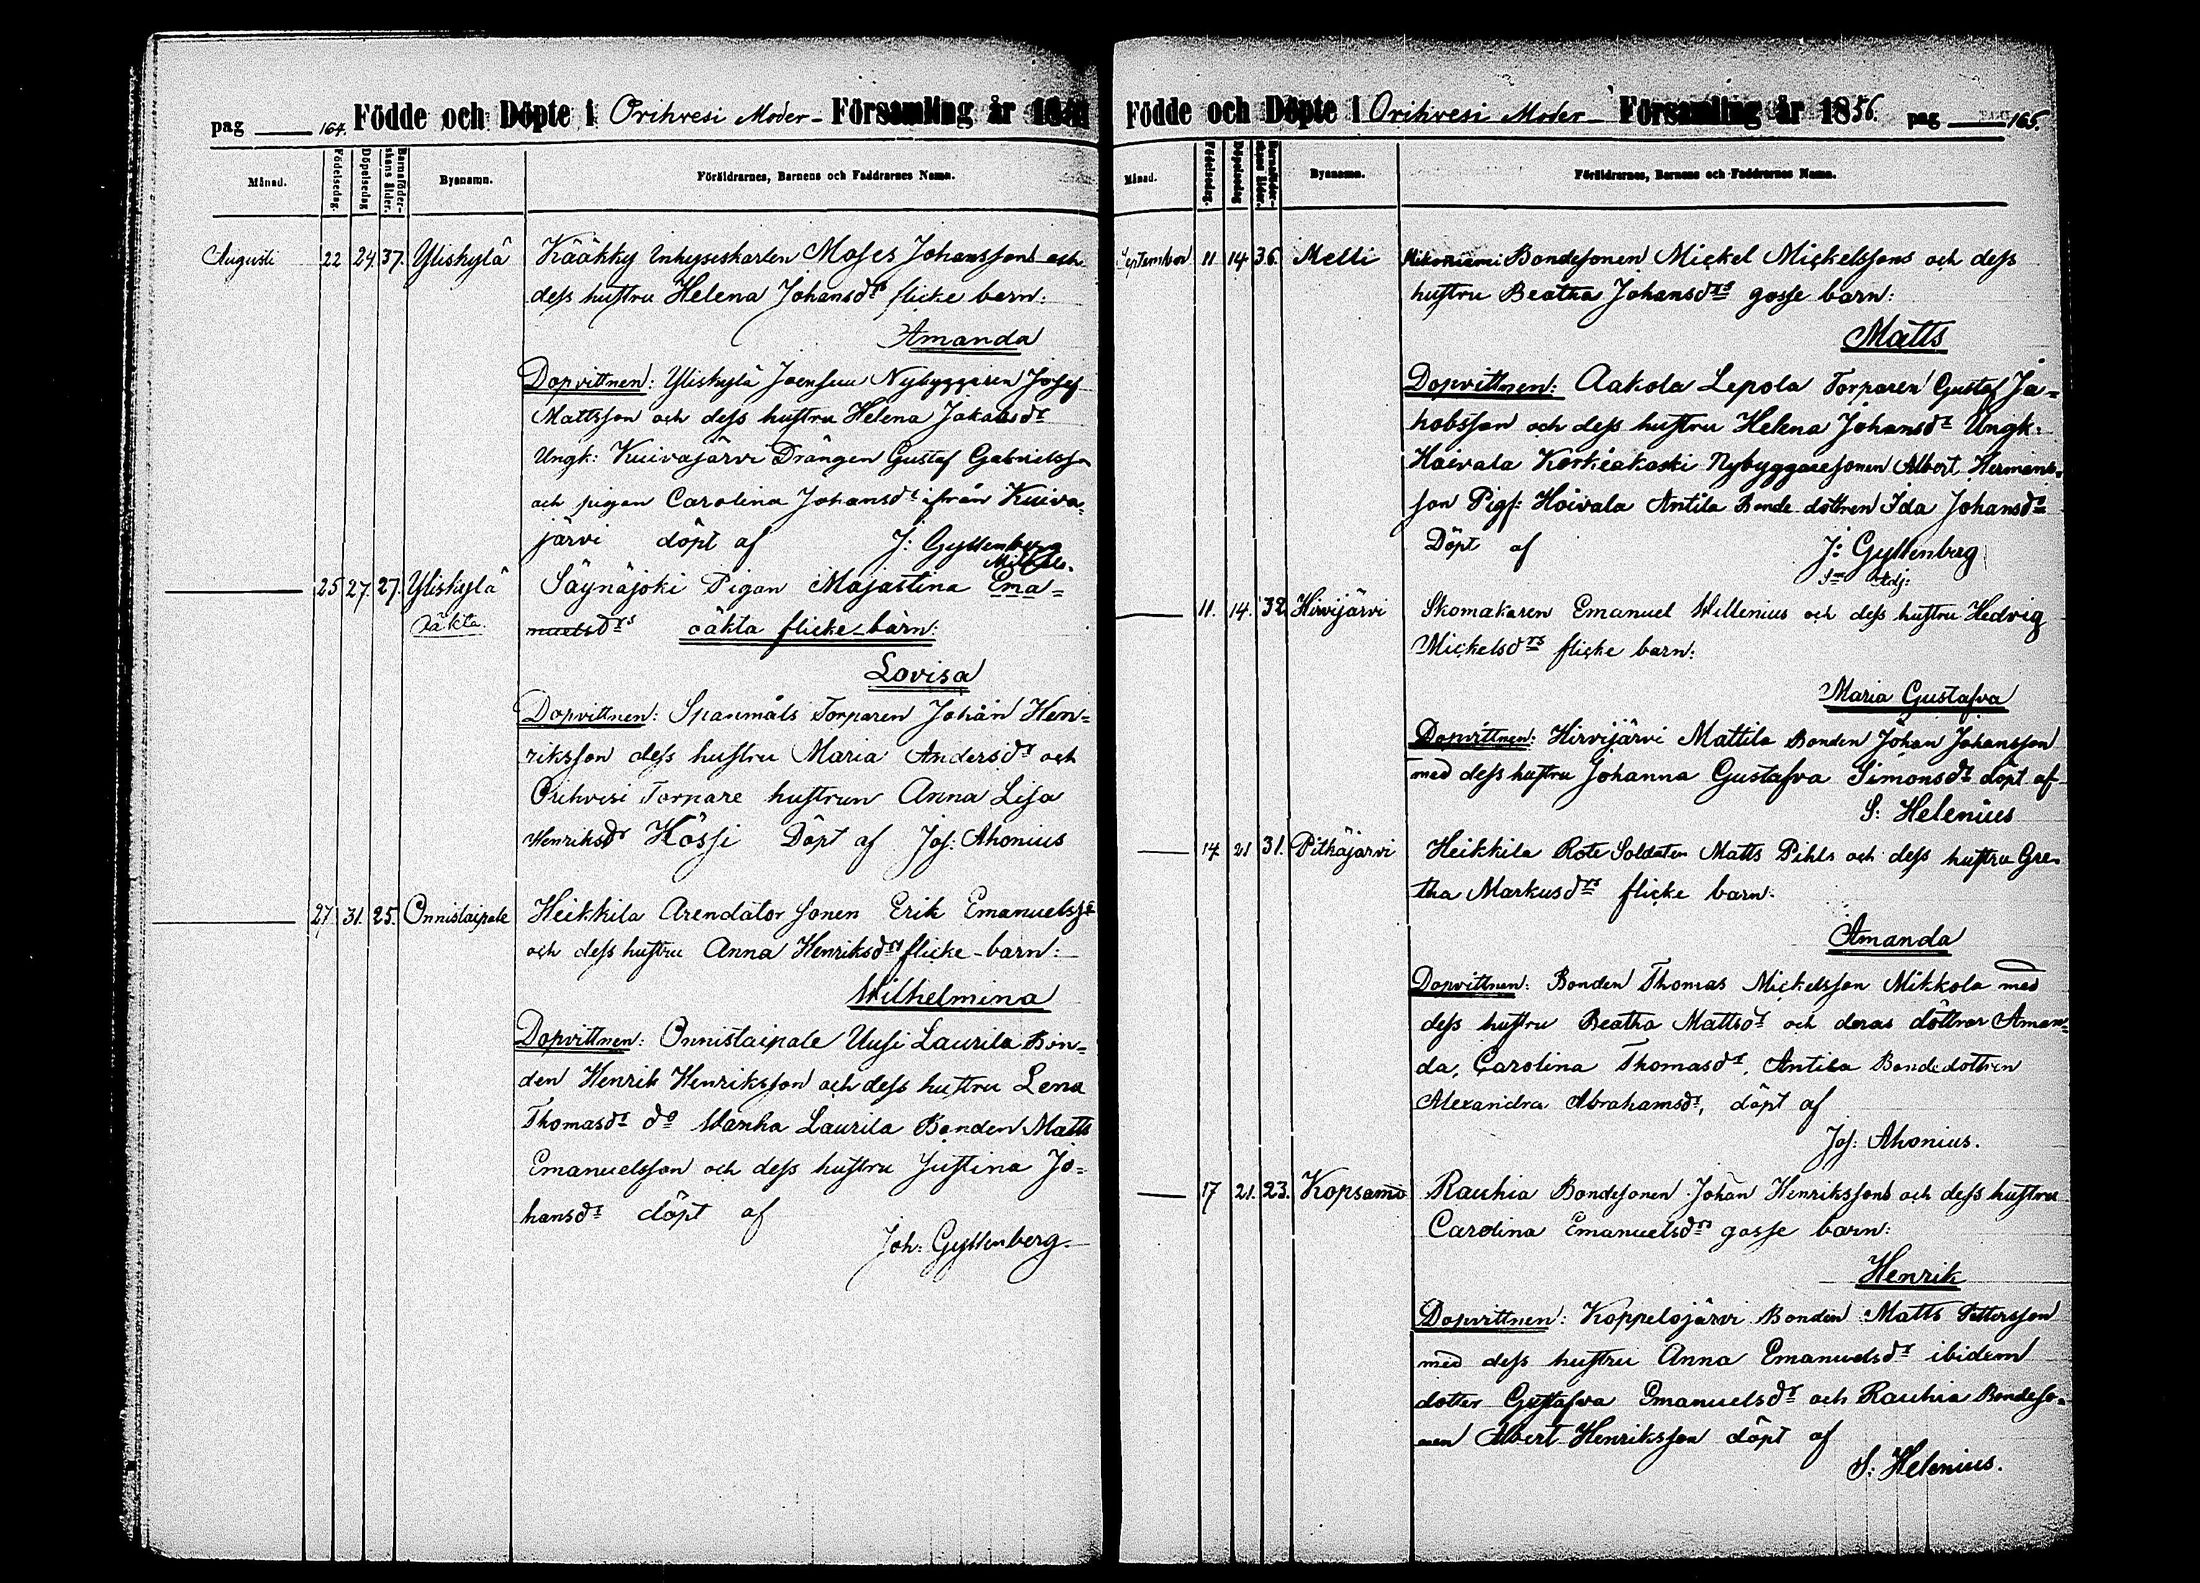 pag 164. Födde och Döpte i Orihvesi Moder- Församling år 18
Månad. Födelsedag. Döpelsedag Barnaföderskans ålder. Bysnamn. Föräldrarnes, Barnens och Faddrarnes Namn.
Augusti 22 24. 37. Yliskylä Kääkky Inhyseskarlen Moses Johanssons och
dess hustru Helena Johansdrs flicke barn:
Amanda
Dopvittnen: Yliskylä Joensuu Nybyggaren Josef
Mattsson och dess hustru Helena Jakobsdr
Ungk: Kuivajärvi Drängen Gustaf Gabrielsson
och pigan Carolina Johansdr ifrån Kuiva-
järvi döpt af J: Gyllenberg
25 27. 27. Yliskylä Säynäjoki Pigan Majastina Ema-
oäkta. nuelsdrs oäkta flicke-barn:
Lovisa
Dopvittnen: Spanmåls Torparen Johan Hen-
riksson dess hustru Maria Andersdr och
Orihvesi Torpare hustrun Anna Lisa
Henriksdr Hössi Döpt af Jos: Ahonius
27. 31. 25. Onnistaipale Heikkila Arendator sonen Erik Emanuelss
och dess hustru Anna Henriksdrs flicke-barn:
Wilhelmina
Dopvittnen: Onnistaipale Uusi Laurila Bon-
den Henrik Henriksson och dess hustru Lena
Thomasdr do Wanha Laurila Bonden Matts
Emanuelsson och dess hustru Justina Jo-
hansdr döpt af
Joh: Gyllenberg.
Födde och Döpte i Orihvesi Moder- Församling år 1856. pag 165.
Månad. Födelsedag. Döpelsedag Barnaföderskans ålder. Bysnamn. Föräldrarnes, Barnens och Faddrarnes Namn.
September 11 14 36. Melli Bondesonen Mickel Mickelssons och dess
hustru Beatha Johansdrs gosse barn:
Matts
Dopvittnen: Aakola Lepola Torparen Gustaf Ja-
kobsson och dess hustru Helena Johansdr Ungk:
Hoivala Korkeakoski Nybyggaresonen Albert Hermans-
son Pigs: Hoivala Antila Bonde dottren Ida Johansdr
Döpt af J: Gyllenberg
Adj:
11. 14. 32 Hirvijärvi Skomakaren Emanuel Willenius och dess hustru Hedvig
Mickelsdrs flicke barn:
Maria Gustafva
Dopvittnen: Hirvijärvi Mattila Bonden Johan Johansson
med dess hustru Johanna Gustafva Simonsdr döpt af
S: Helenius
14 21 31. Pitkäjärvi Heikkila Rote Soldaten Matts Pihls och dess hustru Gre-
tha Markusdrs flicke barn:
Amanda
Dopvittnen: Bonden Thomas Mickelsson Mikkola med
dess hustru Beatha Mattsdr och deras döttrar Aman-
da, Carolina Thomasdr, Antila Bondedottren
Alexandra Abrahamsdr, döpt af
Jos: Ahonius.
17 21. 23. Kopsamo Rauhia Bondesonen Johan Henrikssons och dess hustru
Carolina Emanuelsdrs gosse barn:
Henrik
Dopvittnen: Koppelojärvi Bonden Matts Pettersson
med dess hustru Anna Emanuelsdr ibidem
dotter Gustafva Emanuelsdr och Rauhia Bondeso-
nen Albert Henriksson döpt af
S: Helenius.